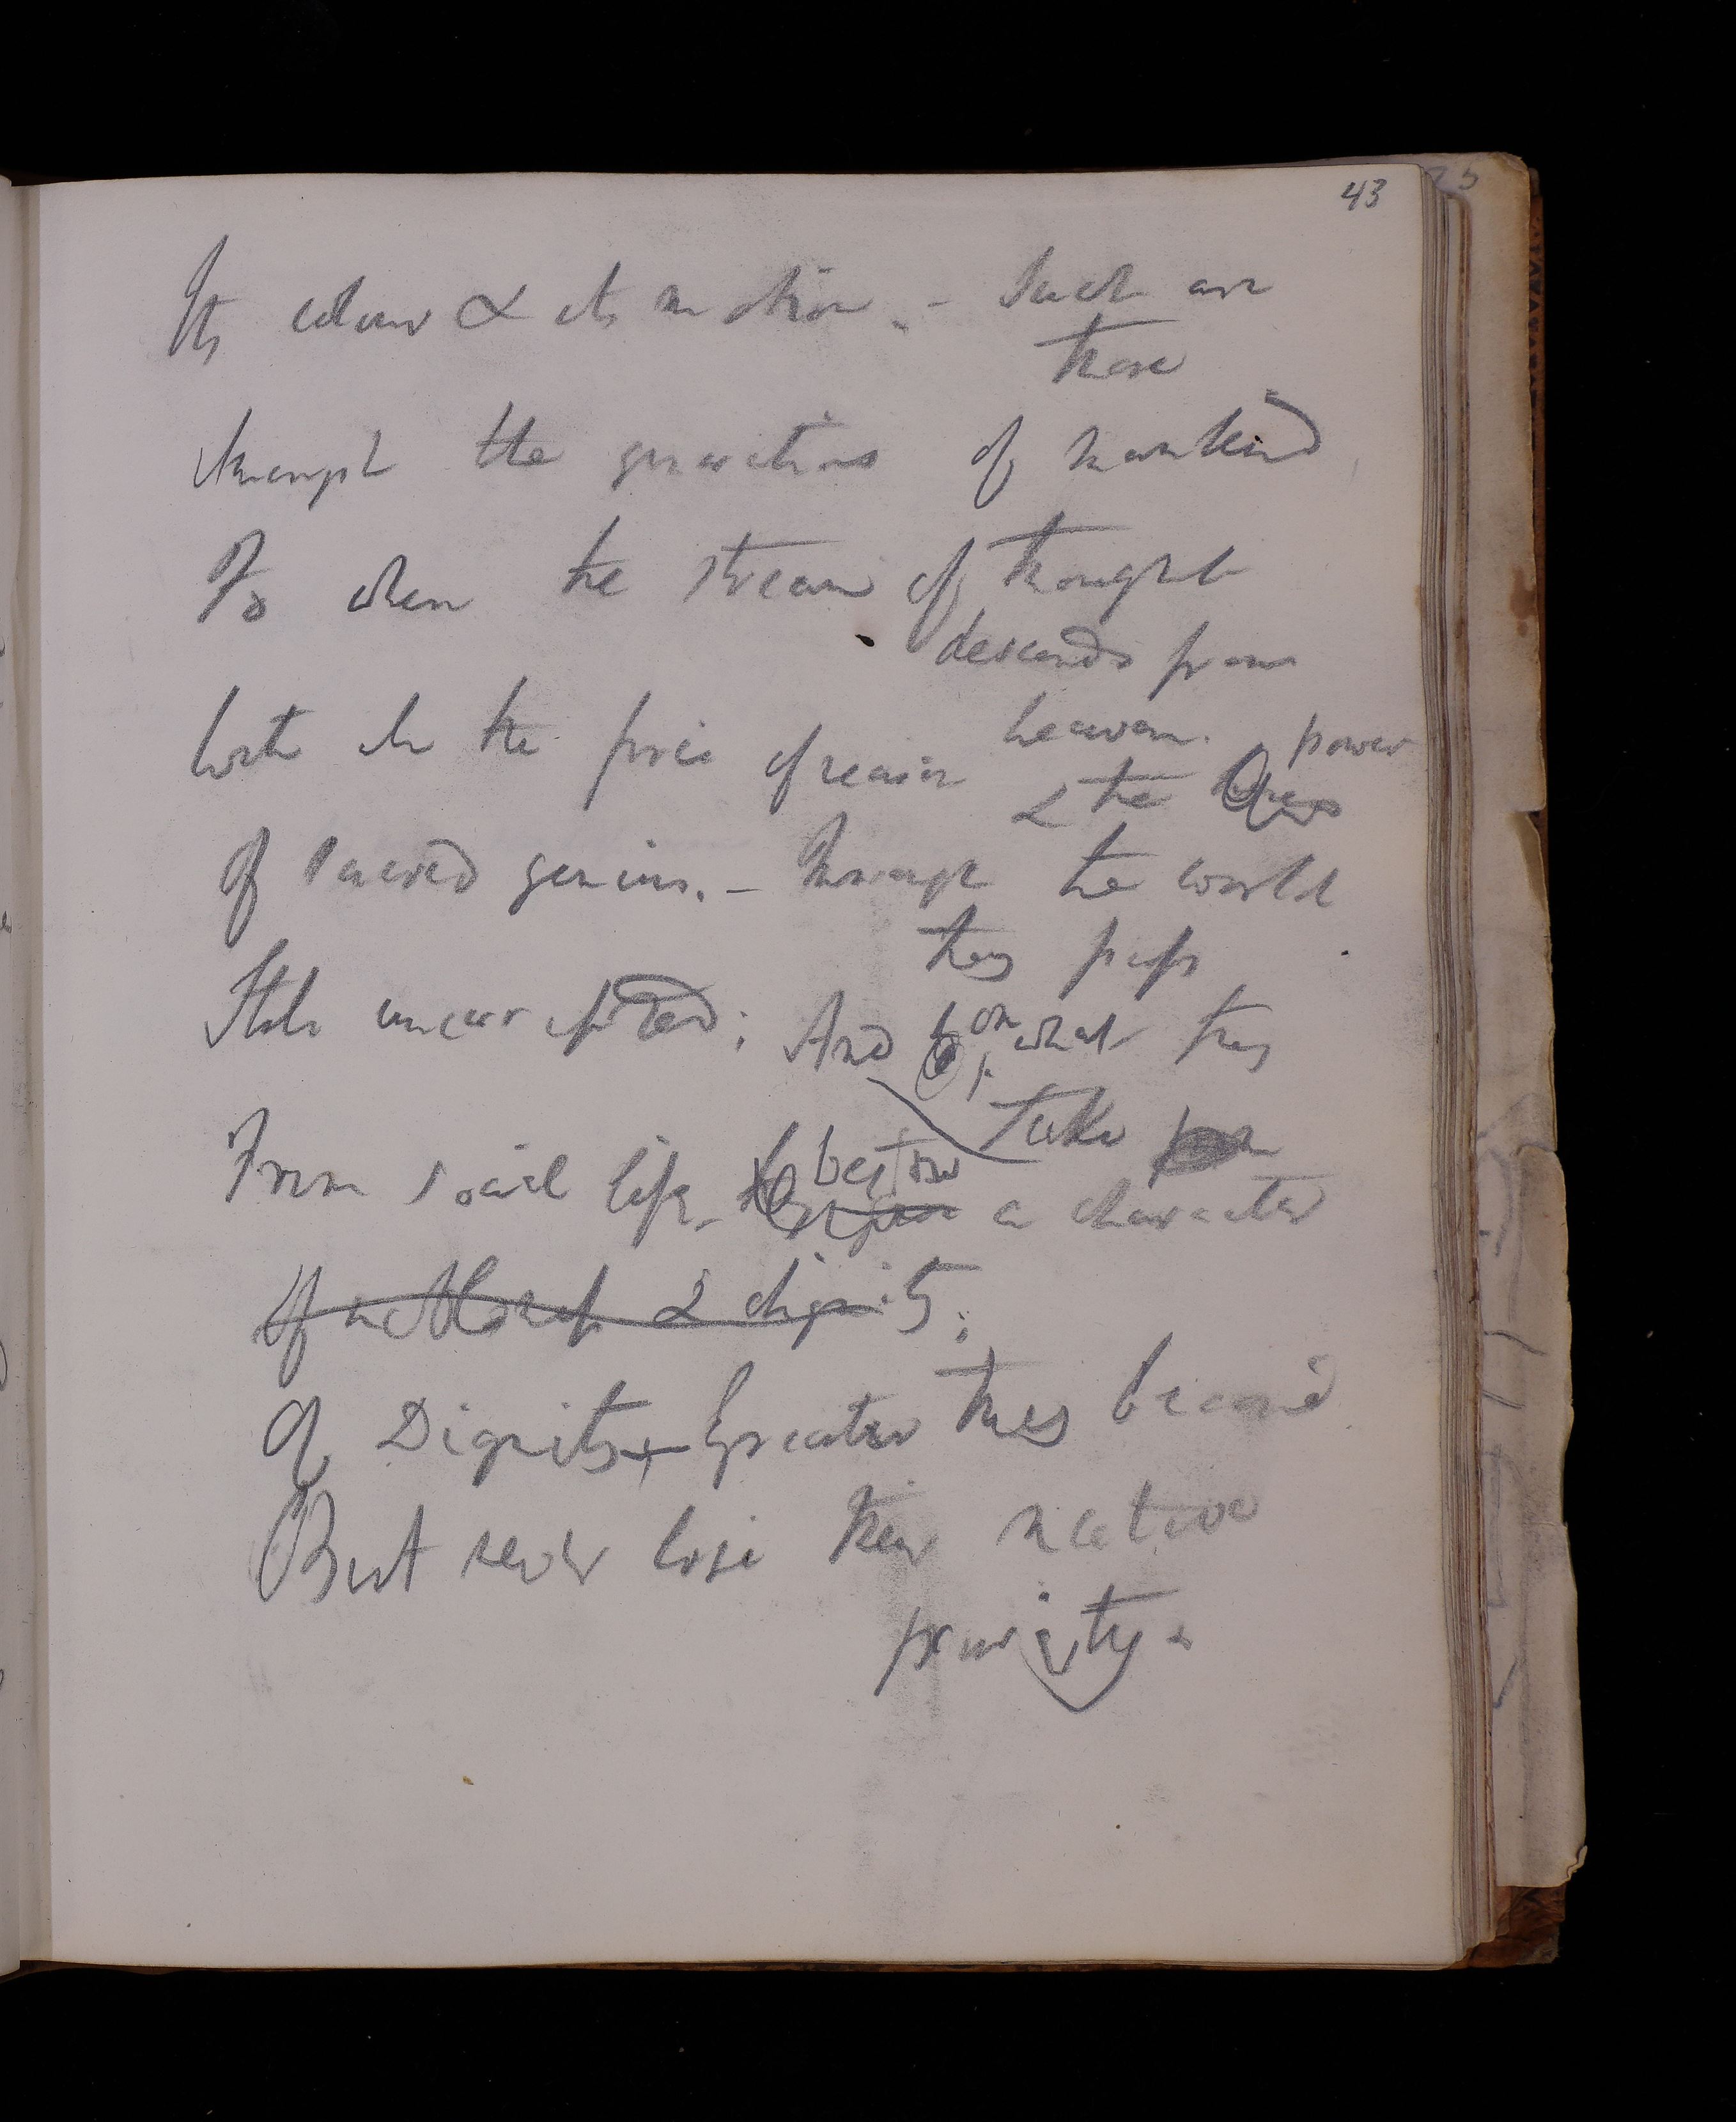 43
Its colour & its motion. - Such are
those
Amongst the generations of mankind
To whom the stream of thought
descends from
heaven.
With all the force of reason & the power
Of sacred genius. - Through the world
they pass
Still uncorrupted; And on what they
take
From social life, bestow a character
Of & dignity;
Of Dignity + Greater they become
But never lose their native
purity.